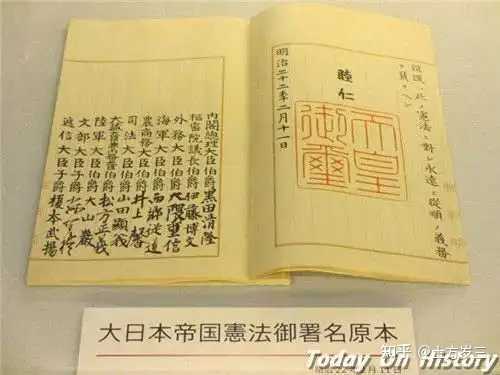 臣民ハ此ノ憲法ニ對シ永遠ニ從順ノ義務
ヲ負フヘシ
睦仁
天皇御璽
明治二十二年二月十一日
内閣總理大臣伯爵黒田清隆
樞密院議長伯爵伊藤博文
外務大臣伯爵大隈重信
海軍大臣伯爵西郷從道
農商務大臣伯爵井上馨
司法大臣伯爵山田顯義
大臣伯爵松方正義
陸軍大臣伯爵大山巖
文部大臣子爵
遞信大臣子爵榎本武揚
大日本帝国憲法御署名原本
知乎 @土方岁三
Today On History